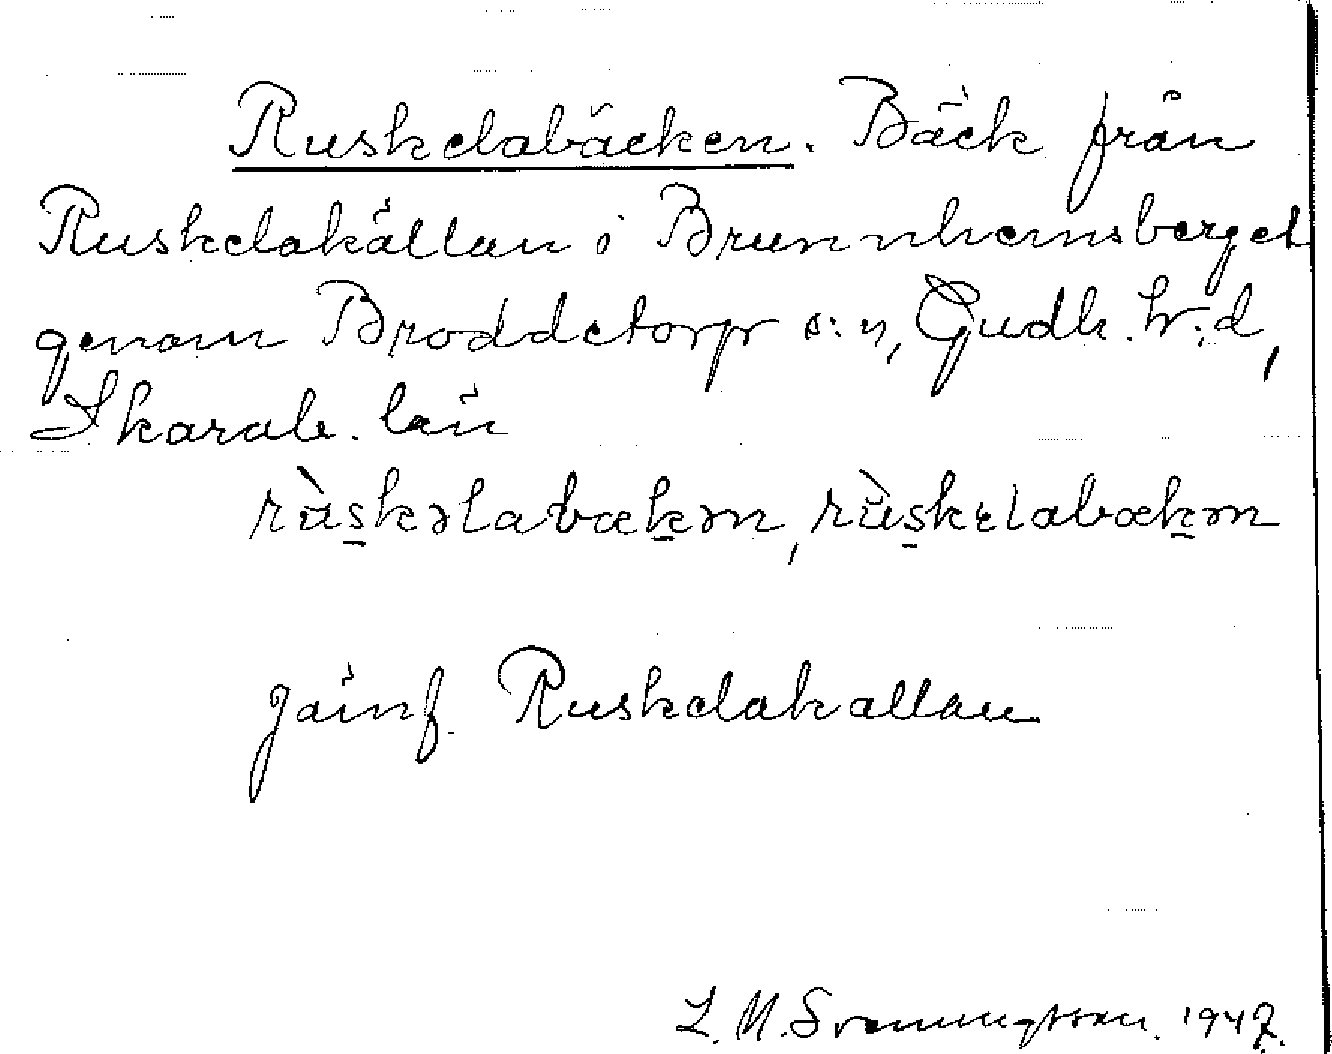 Ruskelabäcken. Bäck från
Ruskelakällan i Brunnhemsberget
genom Broddetorp s:n, Gudh. h:d,
Skarab. län
rùskəlabækən, rùskelabækən
jämf. Ruskelakällan
L. M. Svenungsson. 1947.